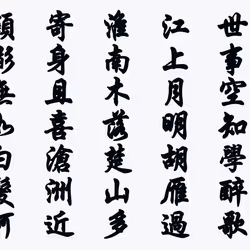 世事空知學醉歌
江上月明胡雁過
淮南木落楚山多
寄身且喜滄洲近
顧影無如白髮何